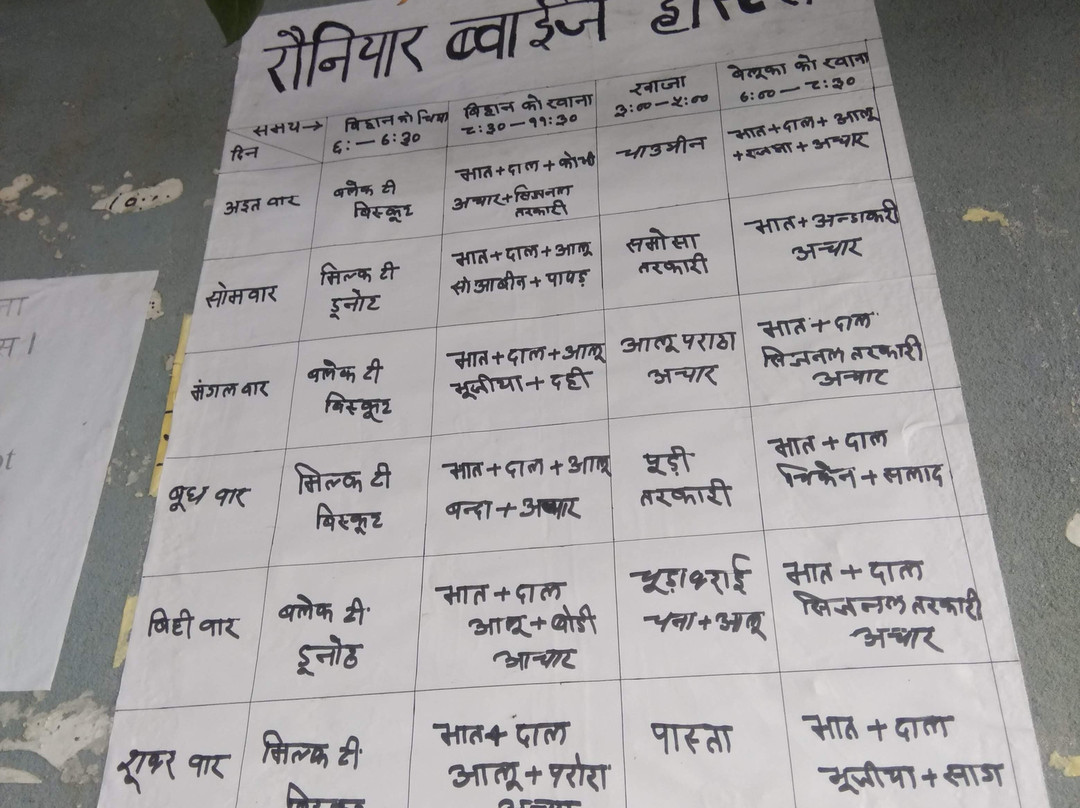 रौनियार ब्वाईज
समय→
दिन
बिहान को चिया
६:—६:३०
बिहान को खाना
८:३०—११:३०
खाजा
३:००—५:००
बेलूका को खाना
६:००—८:३०
अइत वार
ब्लेक टी
बिस्कूट
भात+दाल+कोभी
अचार+सिजनल
तरकारी
चाउमीन
भात+दाल+आलू
+राजमा+अचार
सोमवार
मिल्क टी
डूनोट
भात+दाल+आलू
सोआबीन+पापड़
समोसा
तरकारी
भात+अन्डाकरी
अचार
मंगल वार
ब्लेक टी
बिस्कूट
भात+दाल+आलू
भूजीया+दही
आलू पराठा
अचार
भात+दाल
सिजनल तरकारी
अचार
बूध वार
मिल्क टी
बिस्कूट
भात+दाल+आलू
बन्दा+अचार
पूड़ी
तरकारी
भात+दाल
चिकेन+सलाद
बिही वार
ब्लेक टी
डूनोठ
भात+दाल
आलू+बोडी
आचार
चना+आलू
भात+दाल
सिजनल तरकारी
अचार
शूकर वार
मिल्क टी
भात+दाल
आलू+परोरा
पास्ता
भात+दाल
भूजीया+साग